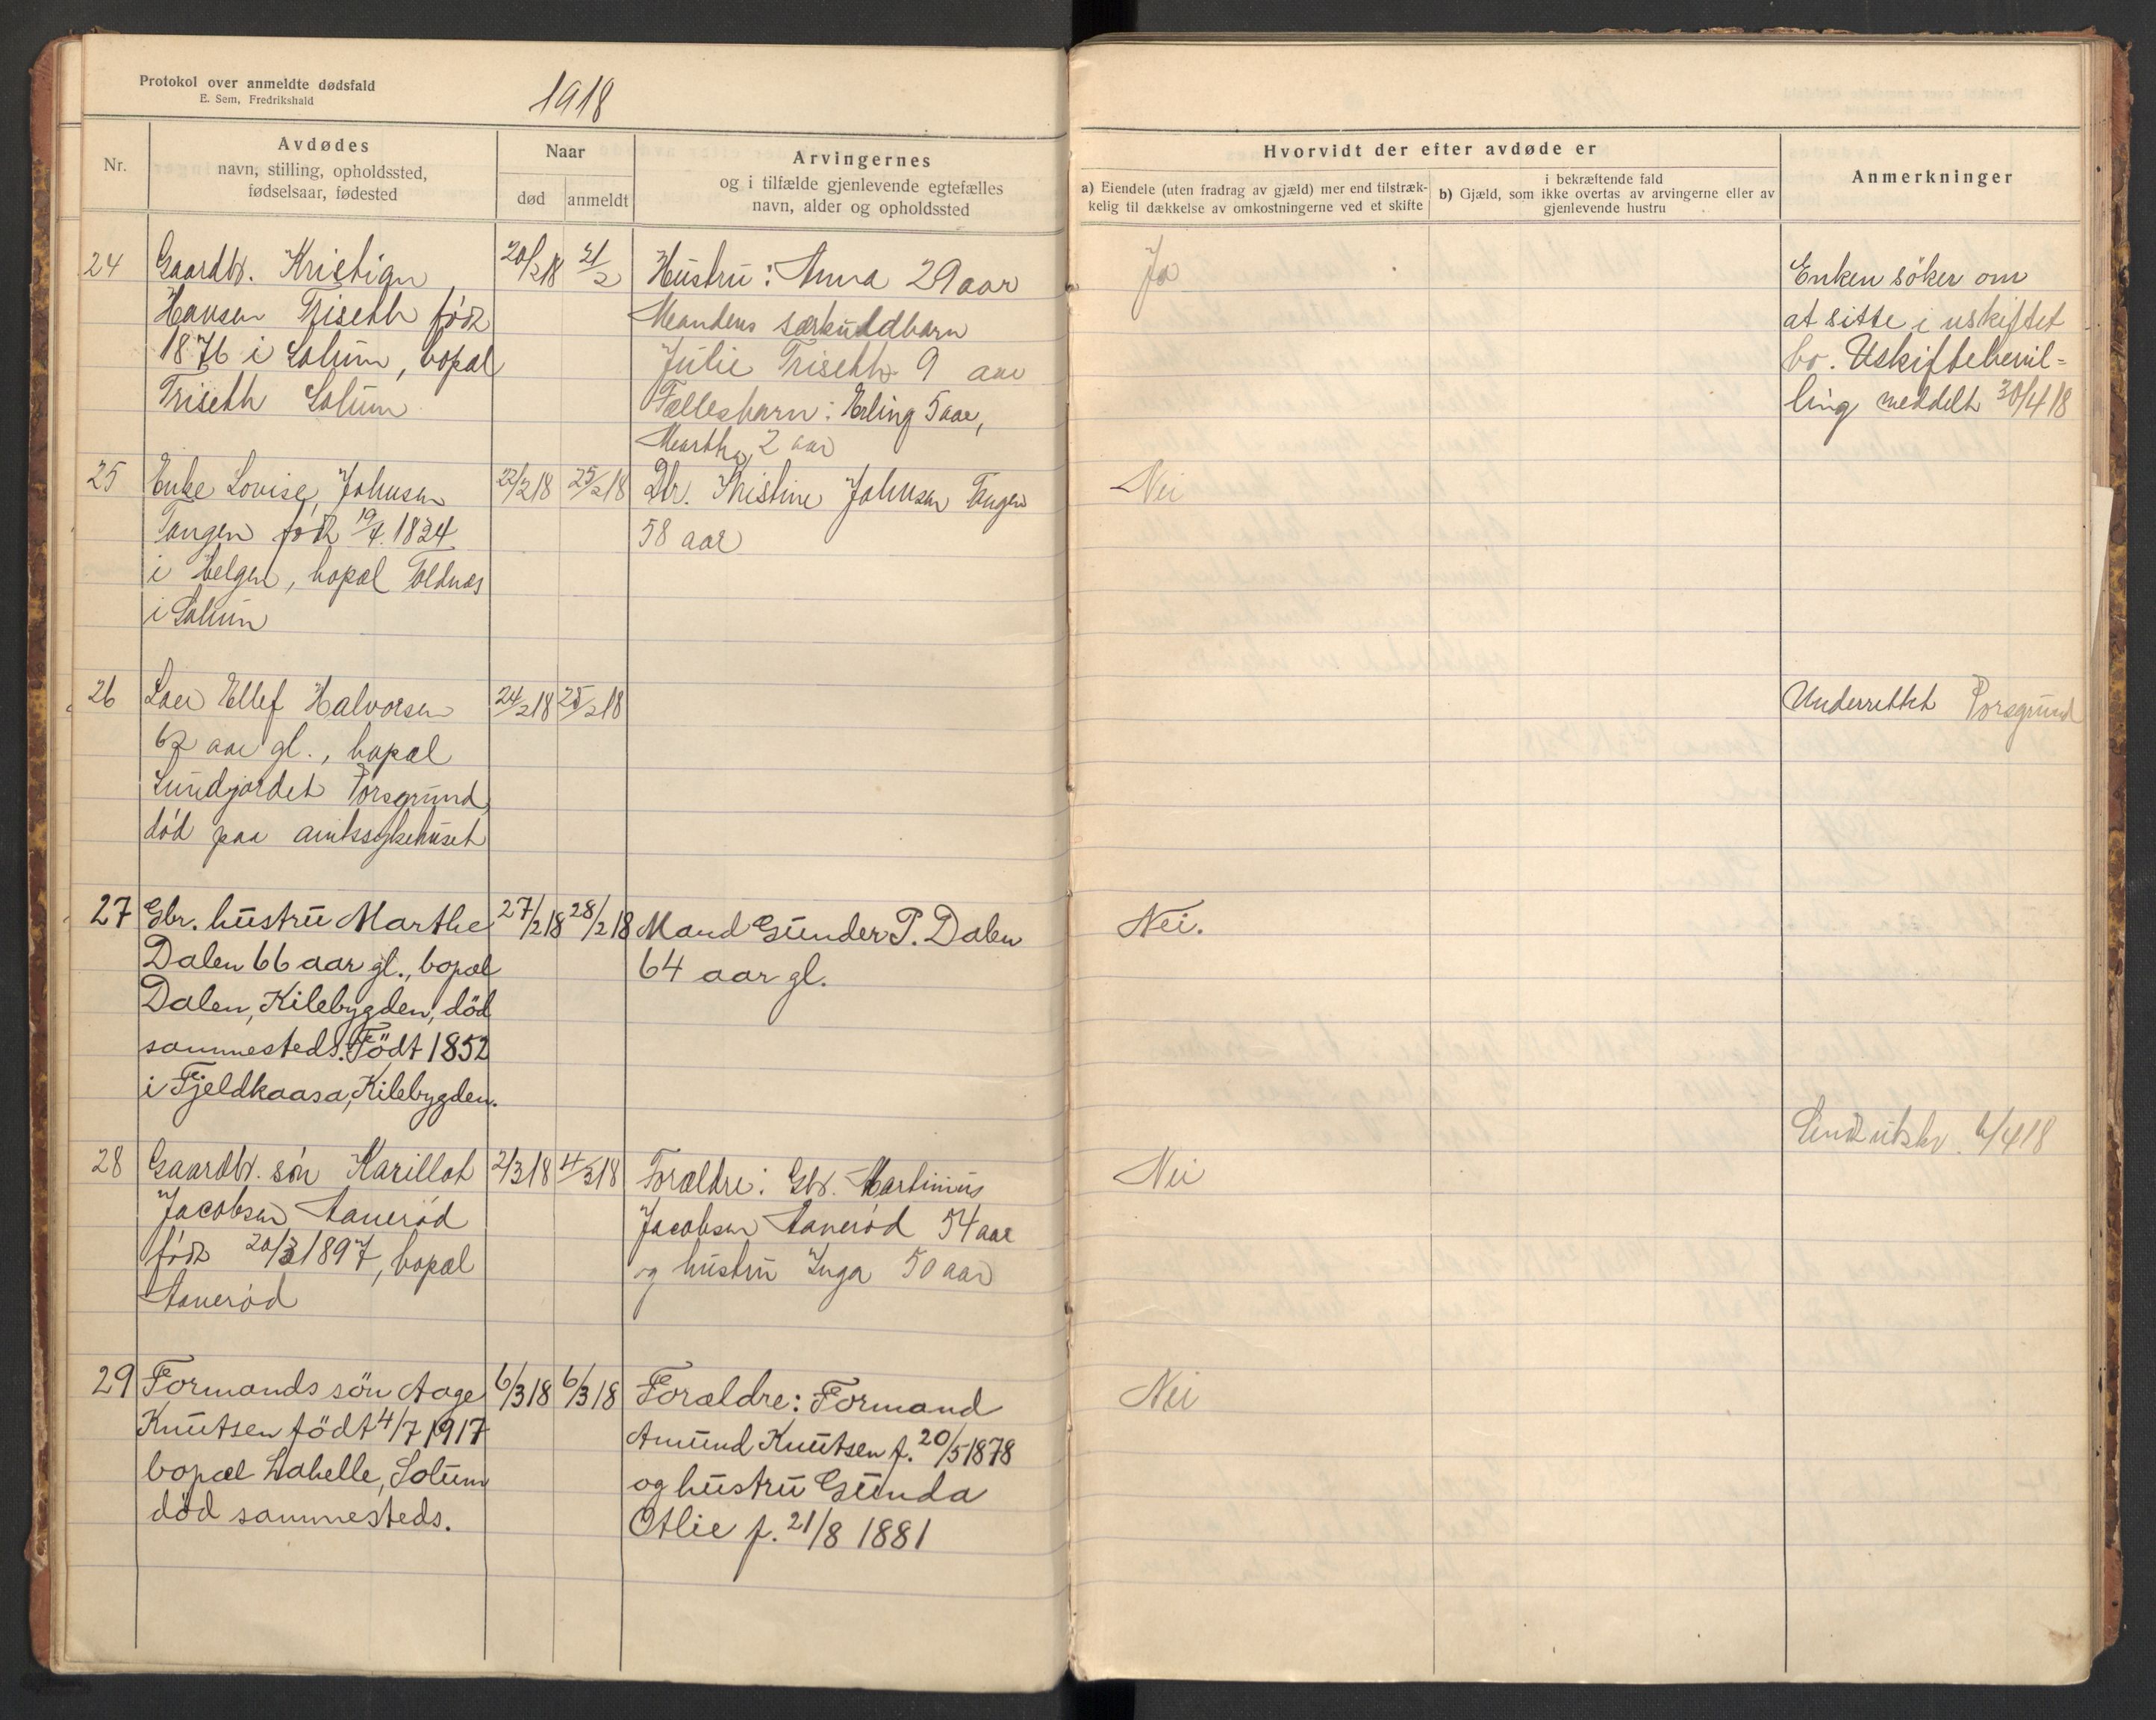 Protokol over anmeldte dødsfald
E. Sem, Fredrikshald
1918
Nr.
Avdødes
navn, stilling, opholdssted,
fødselsaar, fødested
Naar
død
anmeldt
Arvingernes
og i tilfælde gjenlevende egtefælles
navn, alder og opholdssted
Hvorvidt der efter avdøde er
a) Eiendele (uten fradrag av gjæld) mer end tilstræk-
kelig til dækkelse av omkostningerne ved et skifte
i bekræftende fald
b) Gjæld, som ikke overtas av arvingerne eller av
gjenlevende hustru
Anmerkninger
24
Gaardbr. Kristian
Hansen Triseth född
1876 i Solum, bopæl
Triseth Solum
20/2 18
21/2
Hustru: Anna 29 aar
Mandens særkuldbarn
Julie Triseth 9 aar
Fællesbarn: Erling 5 aar,
Martha 2 aar
Ja
Enken söker om
at sitte i uskiftet
bo. Uskiftebevil-
ling meddelt 30/4 18
25
Enke Lovise Johnsen
Tangen født 19/4. 1834
i Helgen, bopæl Toldnæs
i Solum
22/2 18
25/2 18
Dtr. Kristine Johnsen Tangen
58 aar
Nei
26
Ellef Halvorsen
67 aar gl., bopæl
Lundjordet Porsgrund,
død paa amtssykehuset
24/2 18
25/2 18
Underrettet Porsgrund
27
Gbr. hustru Marthe
Dalen 66 aar gl., bopæl
Dalen, Kilebygden, död
sammesteds. Födt 1852
i Fjeldkaasa, Kilebygden.
27/2 18
28/2 18
Mand Gunder P. Dalen
64 aar gl.
Nei.
28
Gaardbr. søn Karillot
Jacobsen Aanerød
født 20/3 1897, bopæl
Aanerød
2/3 18
4/3 18
Forældre: Gbr. Martinius
Jacobsen Aanerød 54 aar
og hustru Inga 50 aar
Nei
Sendt utskr. 6/4 18
29
Formands sön Aage
Knutsen födt 4/7 1917
bopæl Labelle, Solum
död sammesteds.
6/3 18
6/3 18
Forældre: Formand
Amund Knutsen f. 20/5 1878
og hustru Gunda
Otlie f. 21/8 1881
Nei